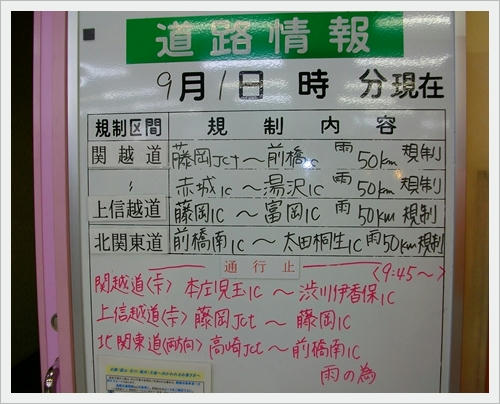 道路情報
9月1日 時 分現在
規制区間 規制内容
関越道 藤岡Jct～前橋IC 雨 50km 規制
〃 赤城IC～湯沢IC 雨 50km 規制
上信越道 藤岡IC～富岡IC 雨 50km 規制
北関東道 前橋南IC～太田桐生IC 雨50km規制
通行止 〈9:45～〉
関越道〈下〉 本庄児玉IC ～ 渋川伊香保IC
上信越道〈下〉 藤岡Jct ～ 藤岡IC
北関東道〈両方向〉 高崎Jct ～ 前橋南IC
雨の為